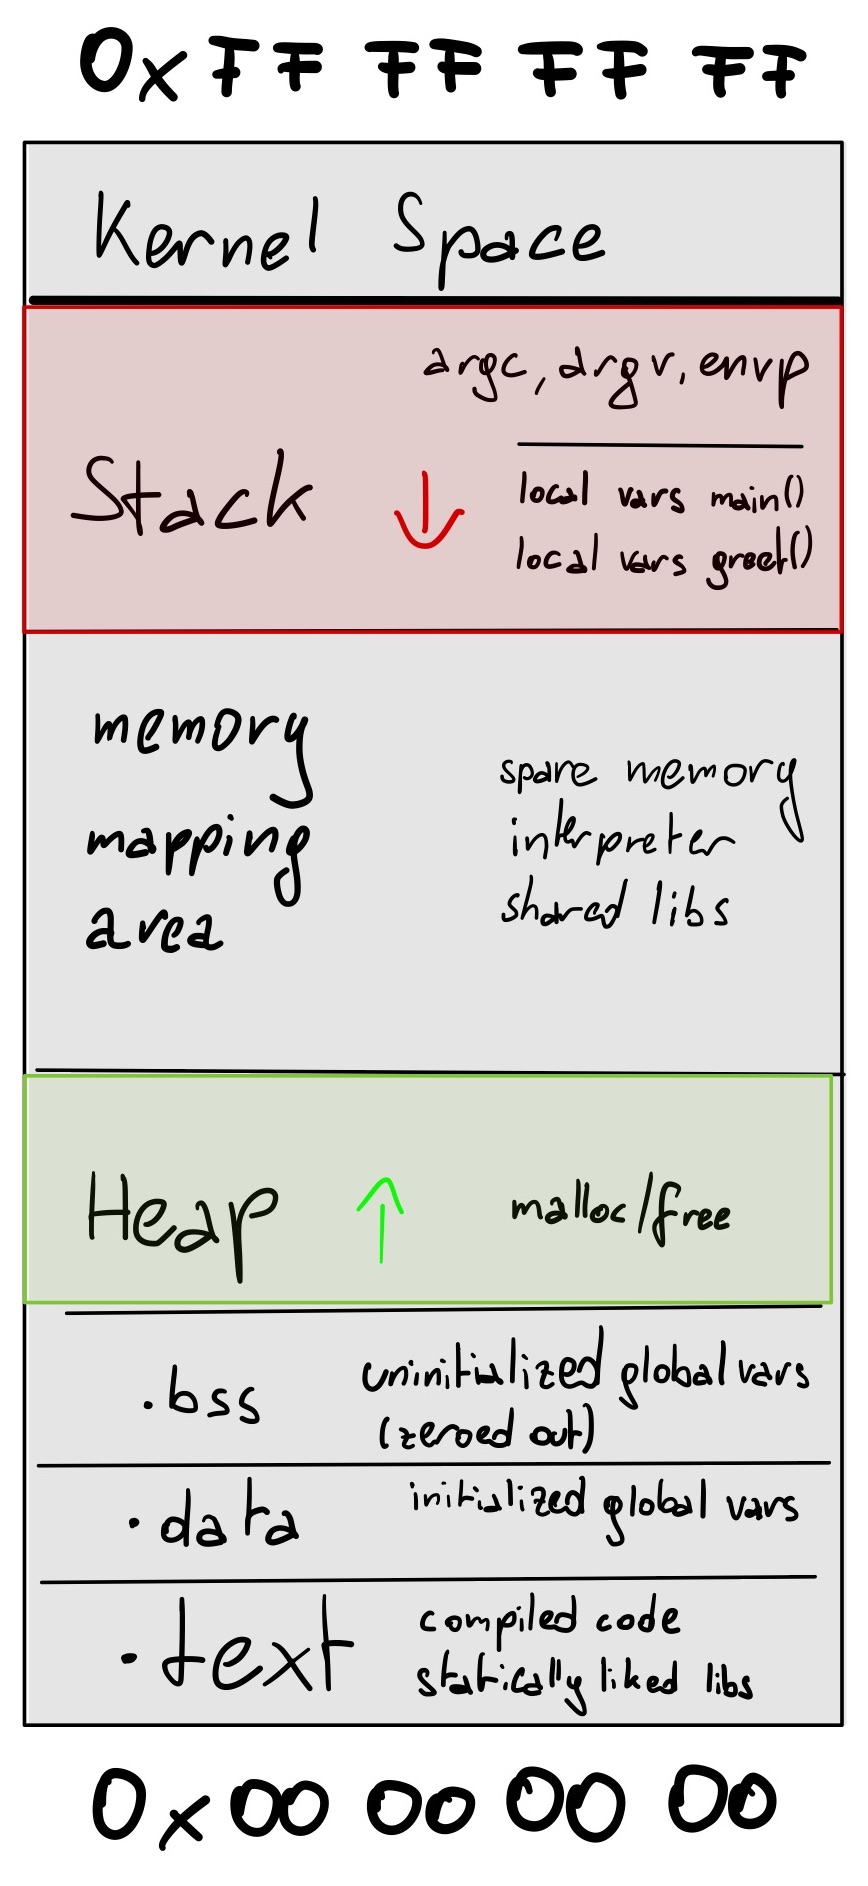 0xFF FF FF FF
Kernel Space
argc, argv, envp
Stack
local vars main()
local vars greet()
memory
mapping
area
spare memory
interpreter
shared libs
Heap
malloc/free
.bss
uninitialized global vars
(zeroed out)
.data
initialized global vars
.text
compiled code
statically liked libs
0x00 00 00 00